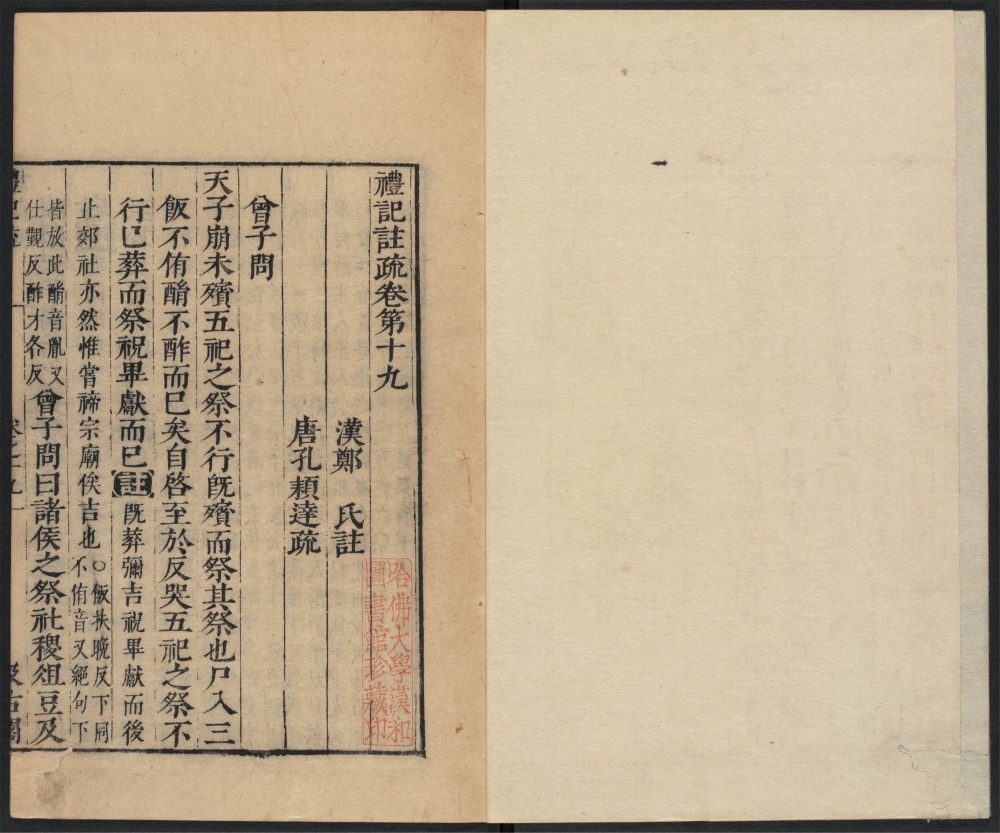 禮記註疏卷第十九
漢鄭 氏註
唐孔穎達疏
哈佛大學漢和
圖書館珍藏印
曾子問
天子崩未殯五祀之祭不行既殯而祭其祭也尸入三
飯不侑酳不酢而已矣自啓至於反哭五祀之祭不
行已葬而祭祝畢獻而已註既葬彌吉祝畢獻而後
止郊社亦然惟嘗禘宗廟俟吉也○飯扶晚反下同
不侑音又絕句下
皆放此酳音胤又
仕覲反酢才各反曾子問曰諸侯之祭社稷俎豆及
禮記疏 卷之十九 汲古閣